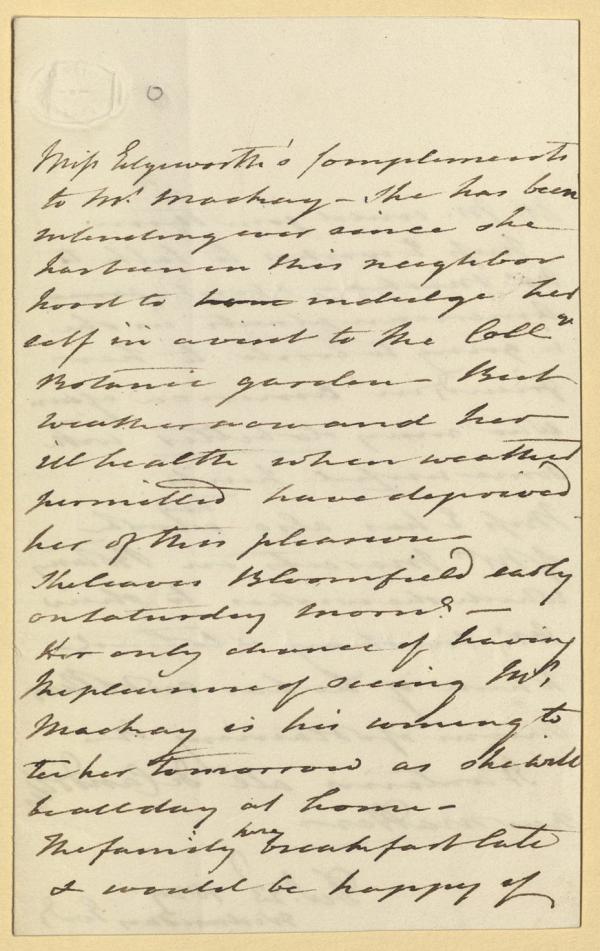 Miss Edgeworth's Compliments
to Mr. Mackay – She has been
intending ever since she
has been in this neighbor
hood to have indulge her
self in a visit to the Coll
Botanic garden – But
weather now and her
ill health when weather
permitted have deprived
her of this pleasure –
She leaves Bloomfield early
on Saturday morn.g –
Her only chance of having
the pleasure of seeing Mr.
Mackay is his coming to
her tomorrow as she will
be all day at home –
The family here breakfast late
& would be happy if